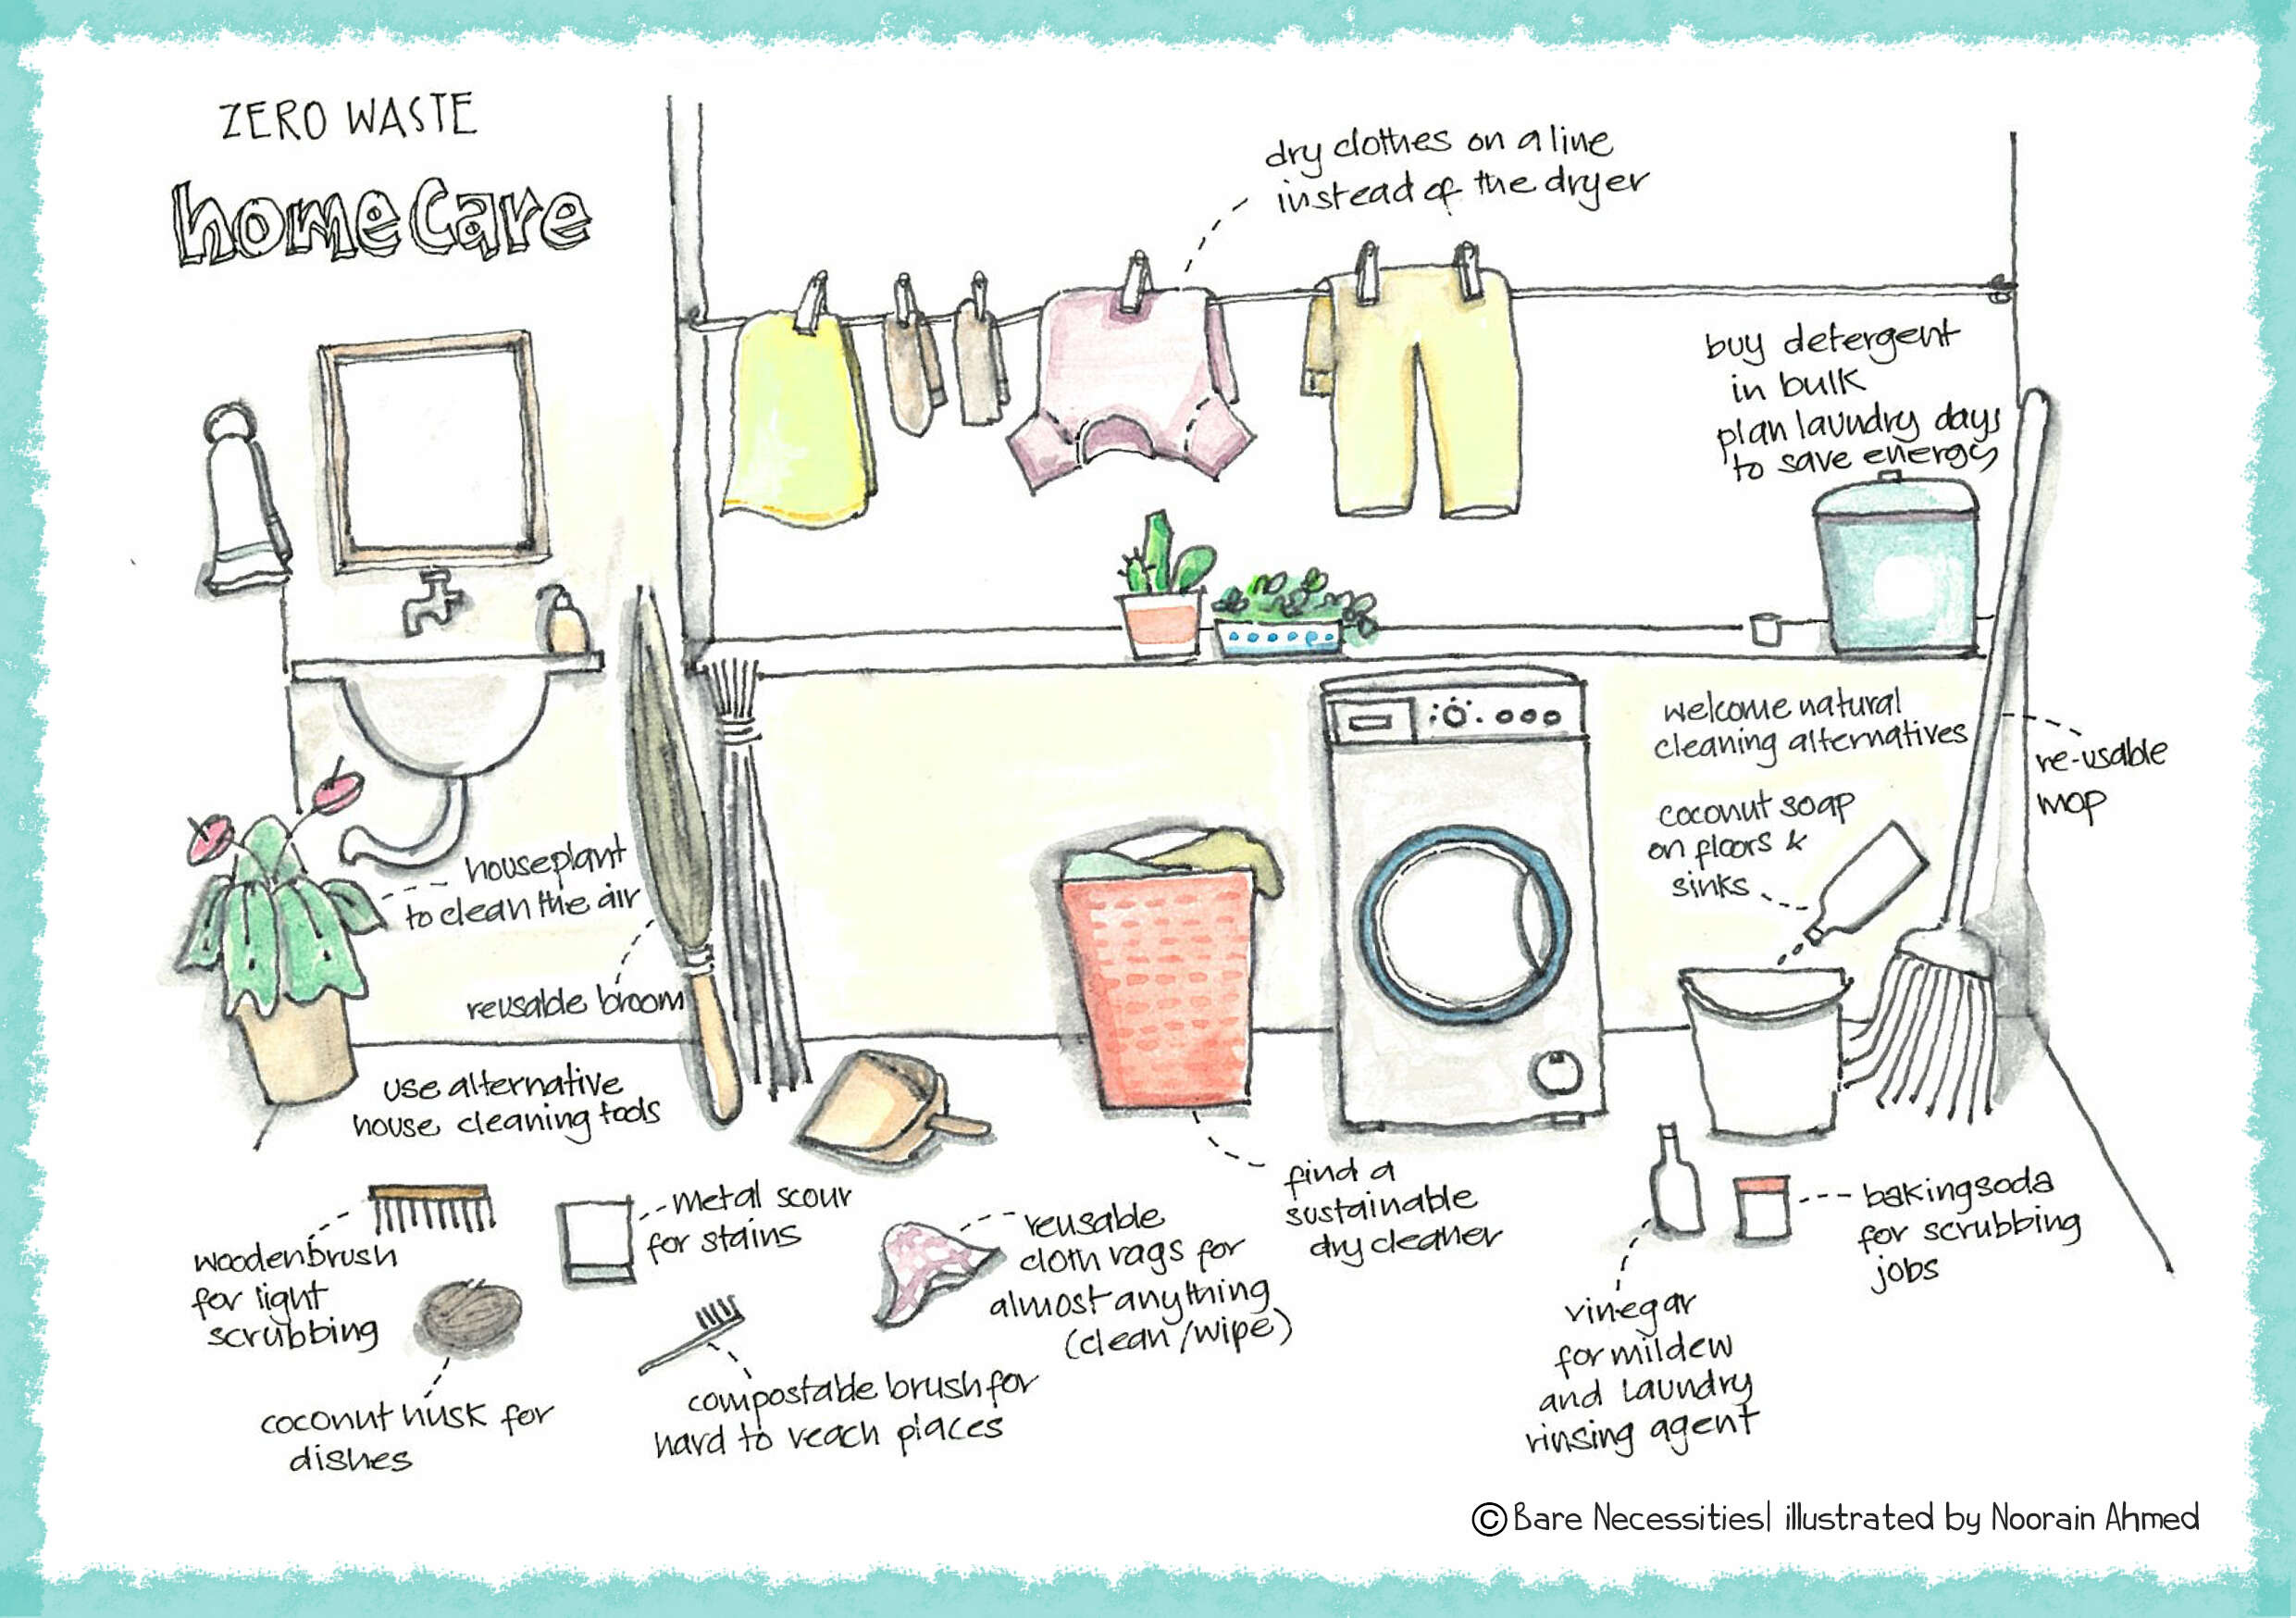 ZERO WASTE
home care
dry clothes on a line
instead of the dryer
buy detergent
in bulk
plan laundry days
to save energy
welcome natural
cleaning alternatives
re-usable
mop
coconut soap
on floors &
sinks
houseplant
to clean the air
reusable broom
use alternative
house cleaning tools
wooden brush
for light
scrubbing
metal scour
for stains
coconut husk for
dishes
compostable brush for
hard to reach places
reusable
cloth rags for
almost anything
(clean/wipe)
find a
sustainable
dry cleaner
baking soda
for scrubbing
jobs
vinegar
for mildew
and laundry
rinsing agent
©Bare Necessities| illustrated by Noorain Ahmed